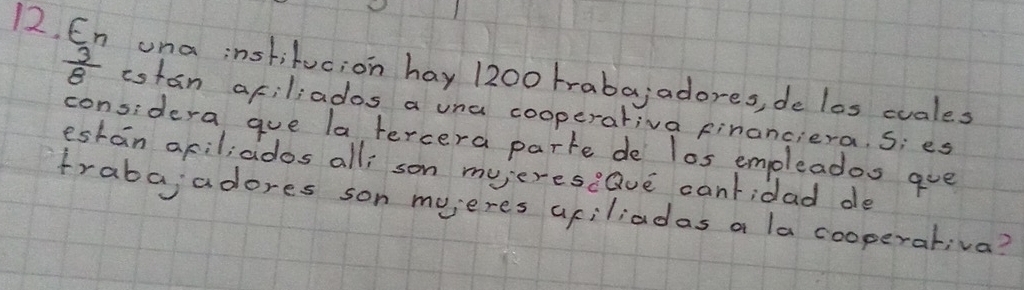 12. En una institución hay 1200 trabajadores, de los cuales
3/8 están afiliados a una cooperativa financiera. Si es
considera que la tercera parte de los empleados que
están afiliados alli son mujeres ¿Qué cantidad de
trabajadores son mujeres afiliadas a la cooperativa?